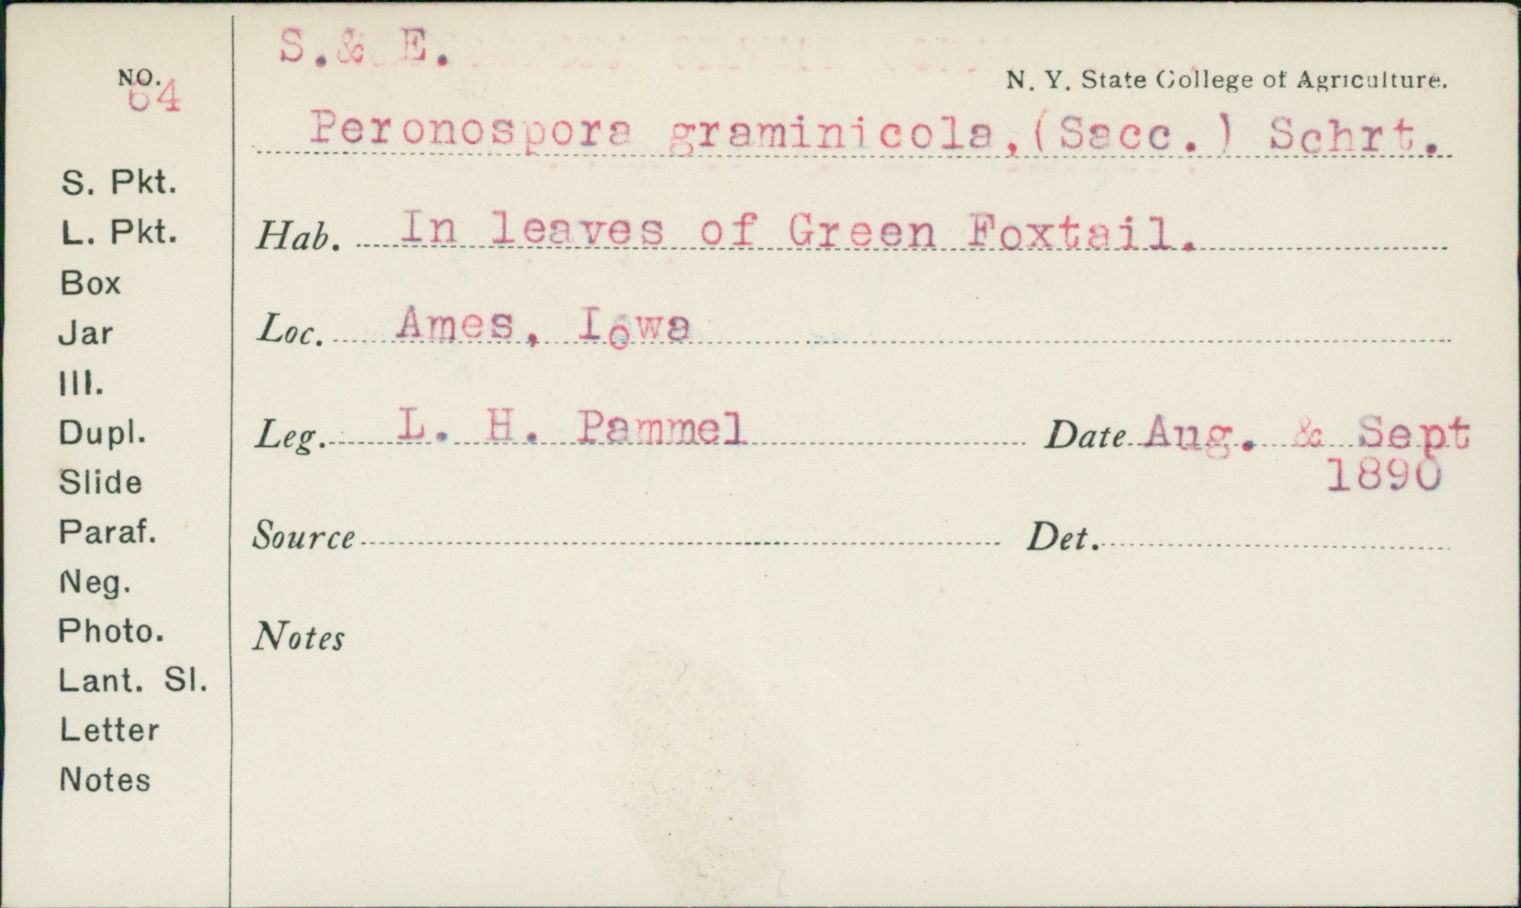 S.& E.
NO.
64
N. Y. State College of Agriculture.
Peronospora graminicola,(Sacc.) Schrt.
S. Pkt.
L. Pkt.
Box
Jar
Ill.
Dupl.
Slide
Paraf.
Neg.
Photo.
Lant. Sl.
Letter
Notes
Hab. In leaves of Green Foxtail.
Loc. Ames, Iowa
Leg. L. H. Pammel Date Aug. & Sept
1890
Source Det.
Notes